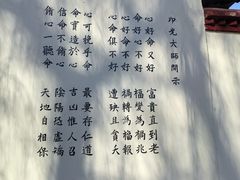 印光大師開示
心好命又好 富貴直到老
命好心不好 福變為禍兆
心好命不好 禍轉為福報
心命俱不好 遭殃且貧夭
心可挽乎命 最要存仁道
命實造於心 吉凶惟人召
信命不脩心 陰陽恐虛矯
脩心一聽命 天地自相保